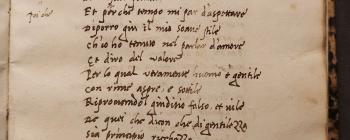 poi che
Et perche tempo mi par d'aspettare
Diporro giu il mio soaue stile
Ch'io ho tenuto nel parlar d'amore
Et diro del ualore
Per lo qual ueramente huomo è gentile
con rime aspre, e sottile
Riprouando'l giudicio falso, et uile
Di quei che dicon che di gentilezza
sia principio ricchezza